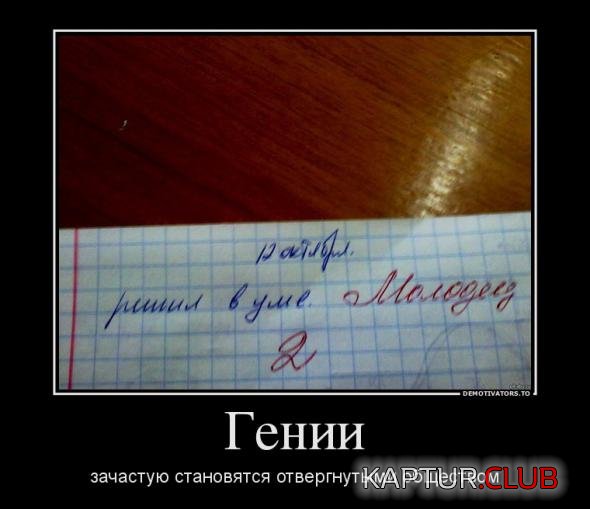 12 октября.
решил в уме. Молодец
2
DEMOTIVATORS.TO
Гении
зачастую становятся отвергнутыми обществом
KAPTUR.CLUB